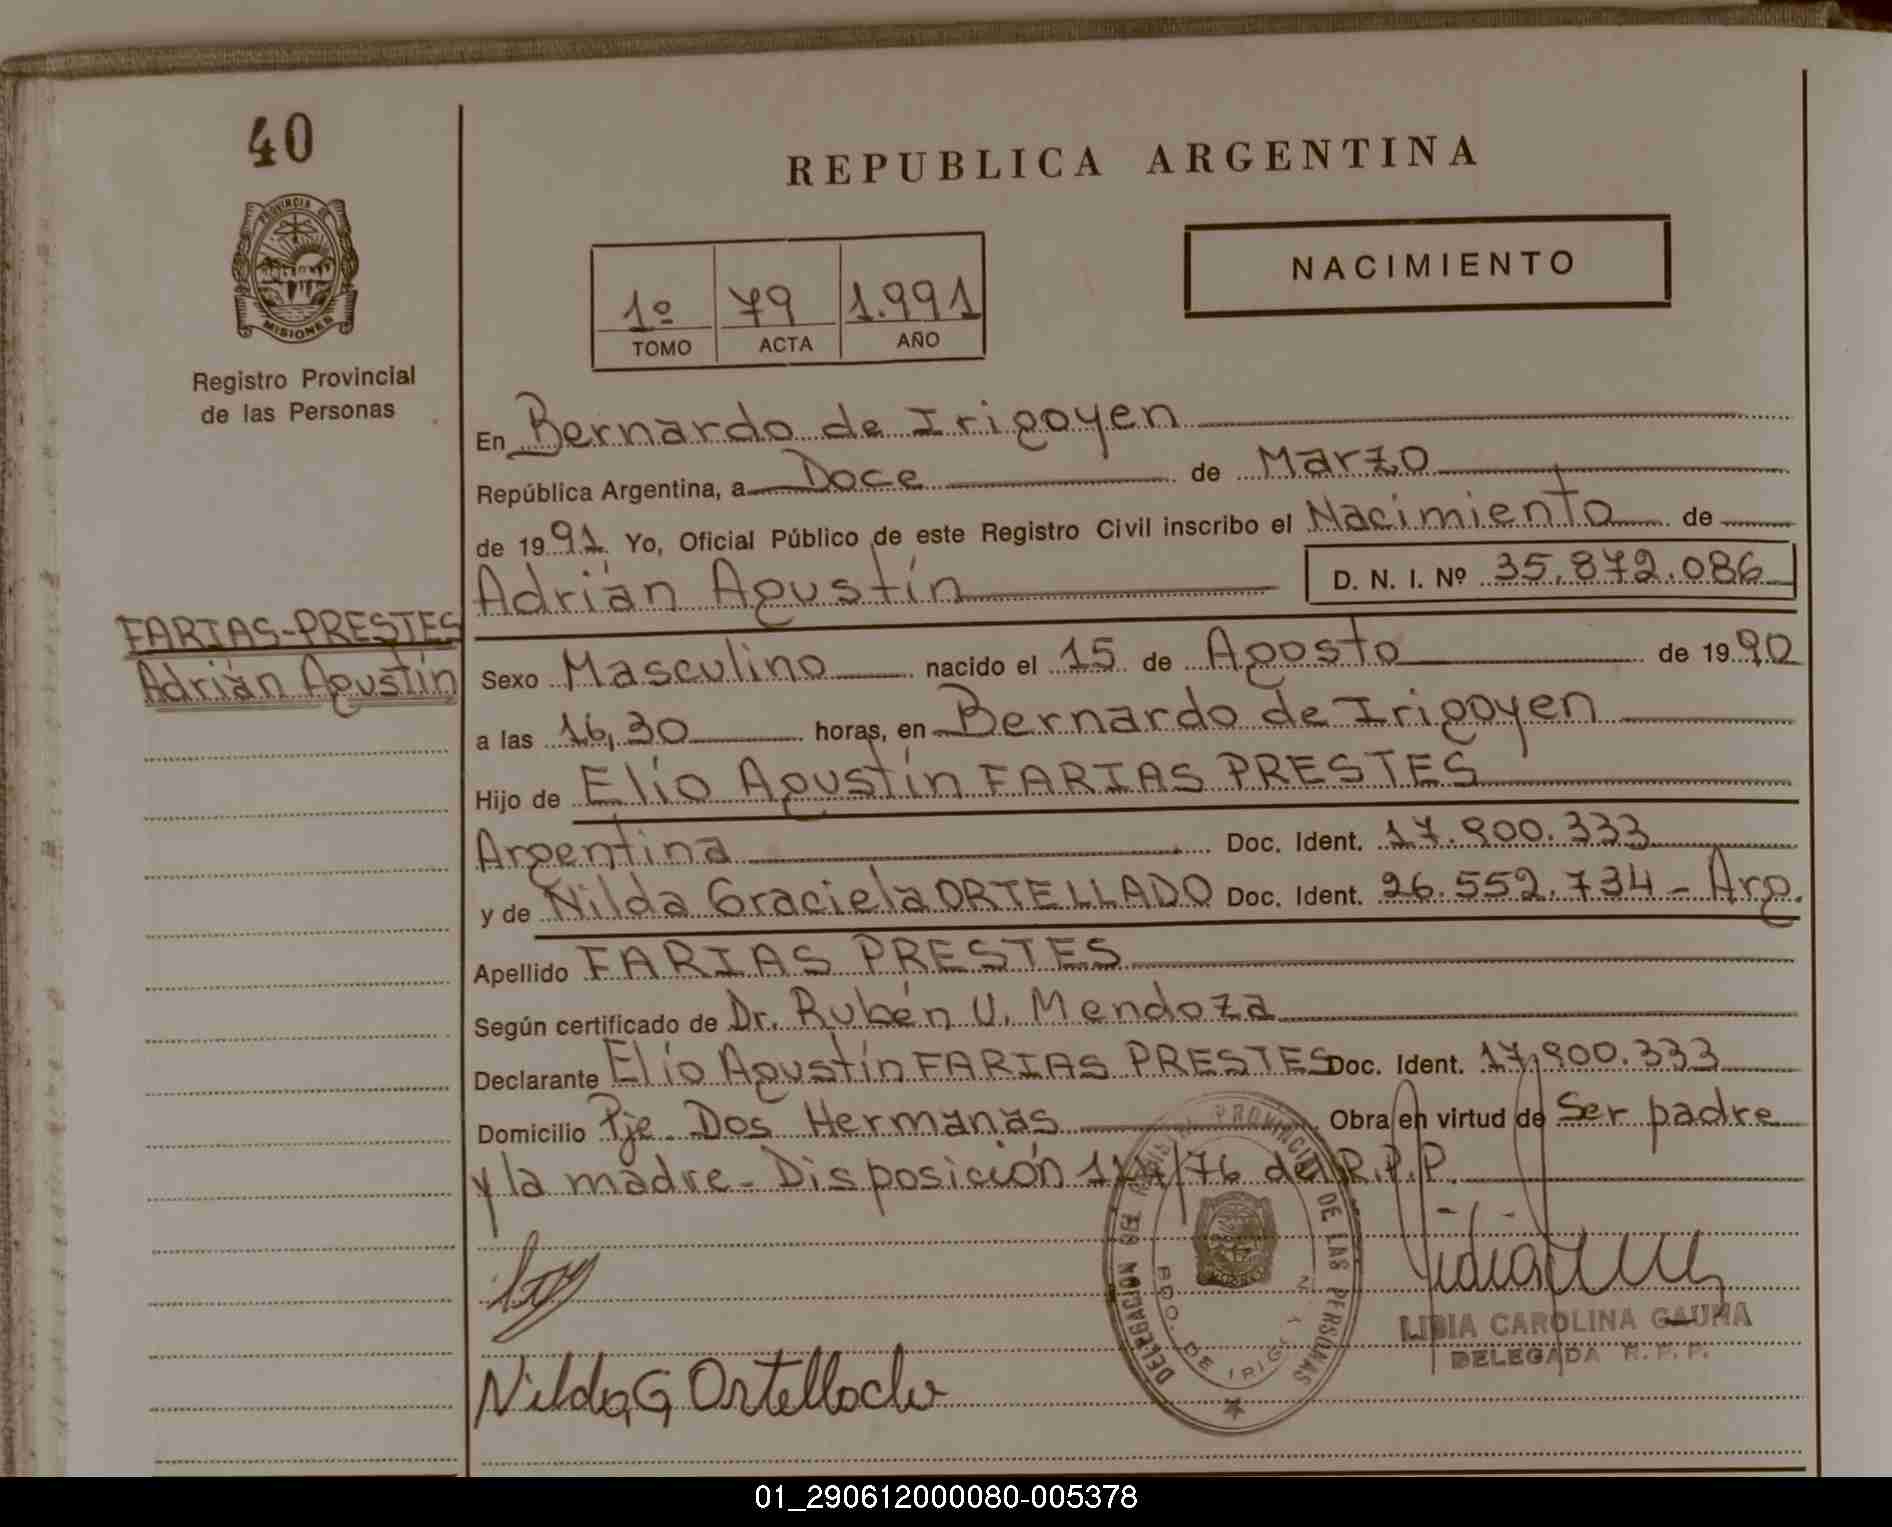 40
REPUBLICA ARGENTINA
PROVINCIA DE
MISIONES
Registro Provincial
de las Personas
1º 79 1.991
TOMO ACTA AÑO
NACIMIENTO
En Bernardo de Irigoyen
República Argentina, a Doce de Marzo
de 1991 Yo, Oficial Público de este Registro Civil inscribo el Nacimiento de
Adrián Agustín D. N. I. Nº 35.872.086
FARIAS-PRESTES
Adrián Agustín
Sexo Masculino nacido el 15 de Agosto de 1990
a las 16,30 horas, en Bernardo de Irigoyen
Hijo de Elío Agustín FARIAS PRESTES
Argentina Doc. Ident. 17.900.333
y de Nilda Graciela ORTELLADO Doc. Ident. 26.552.734 - Arg.
Apellido FARIAS PRESTES
Según certificado de Dr. Rubén U. Mendoza
Declarante Elío Agustín FARIAS PRESTES Doc. Ident. 17.900.333
Domicilio Pje. Dos Hermanas Obra en virtud de Ser padre
y la madre - Disposición 114/76 del R.P.P.
Nilda G Ortellado
LIDIA CAROLINA GAUNA
DELEGADA R. P. P.
REGISTRO PROVINCIAL DE LAS PERSONAS
DELEGACION
BDO. DE IRIGOYEN
01_290612000080-005378